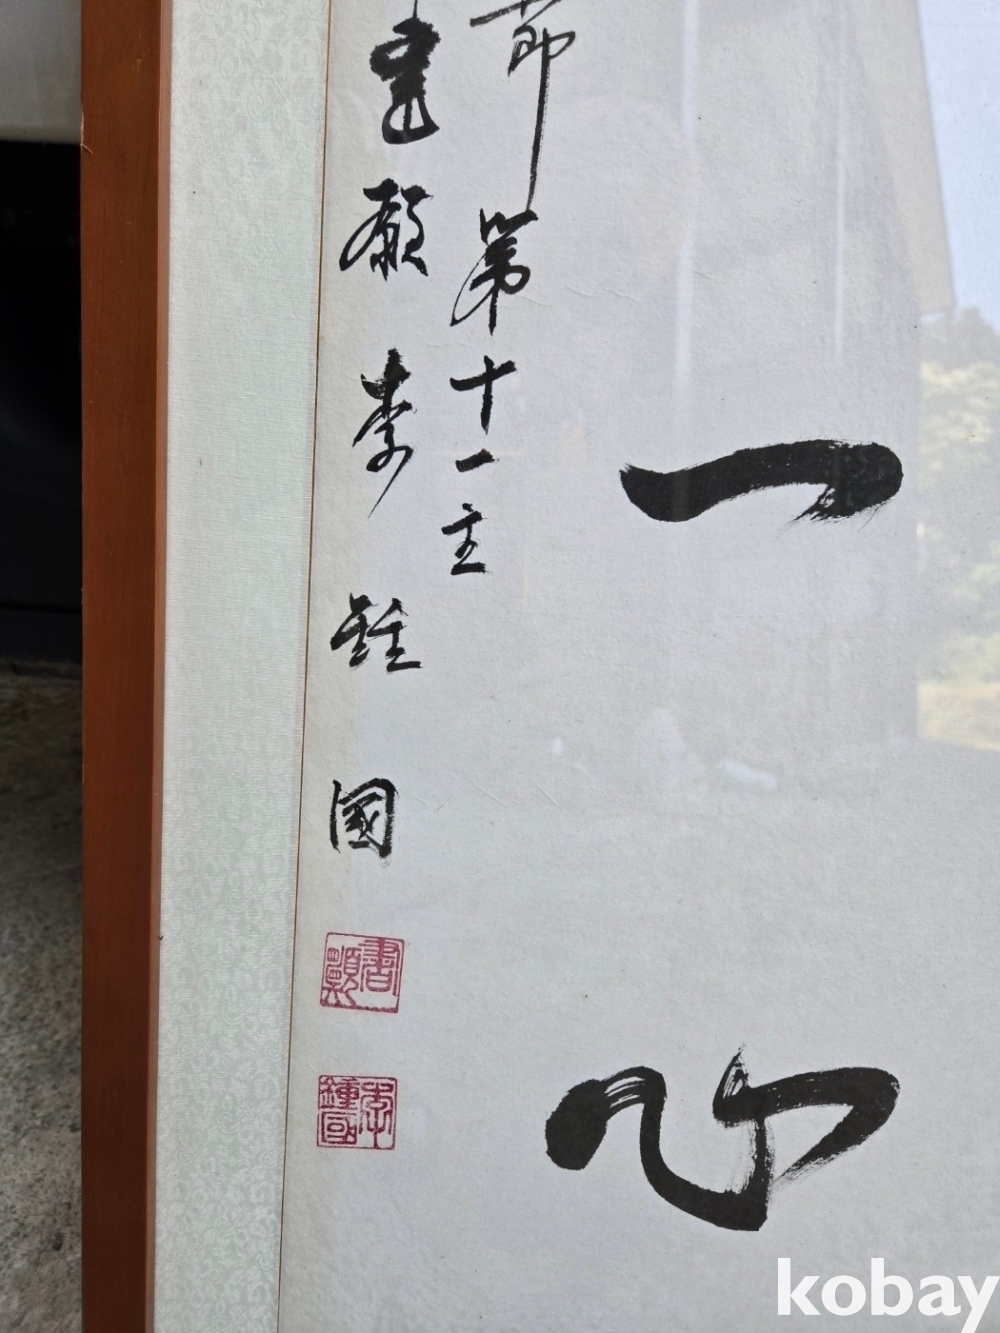 一心
節第十一主
書顚 李鍾國
書顚
李鍾國
kobay